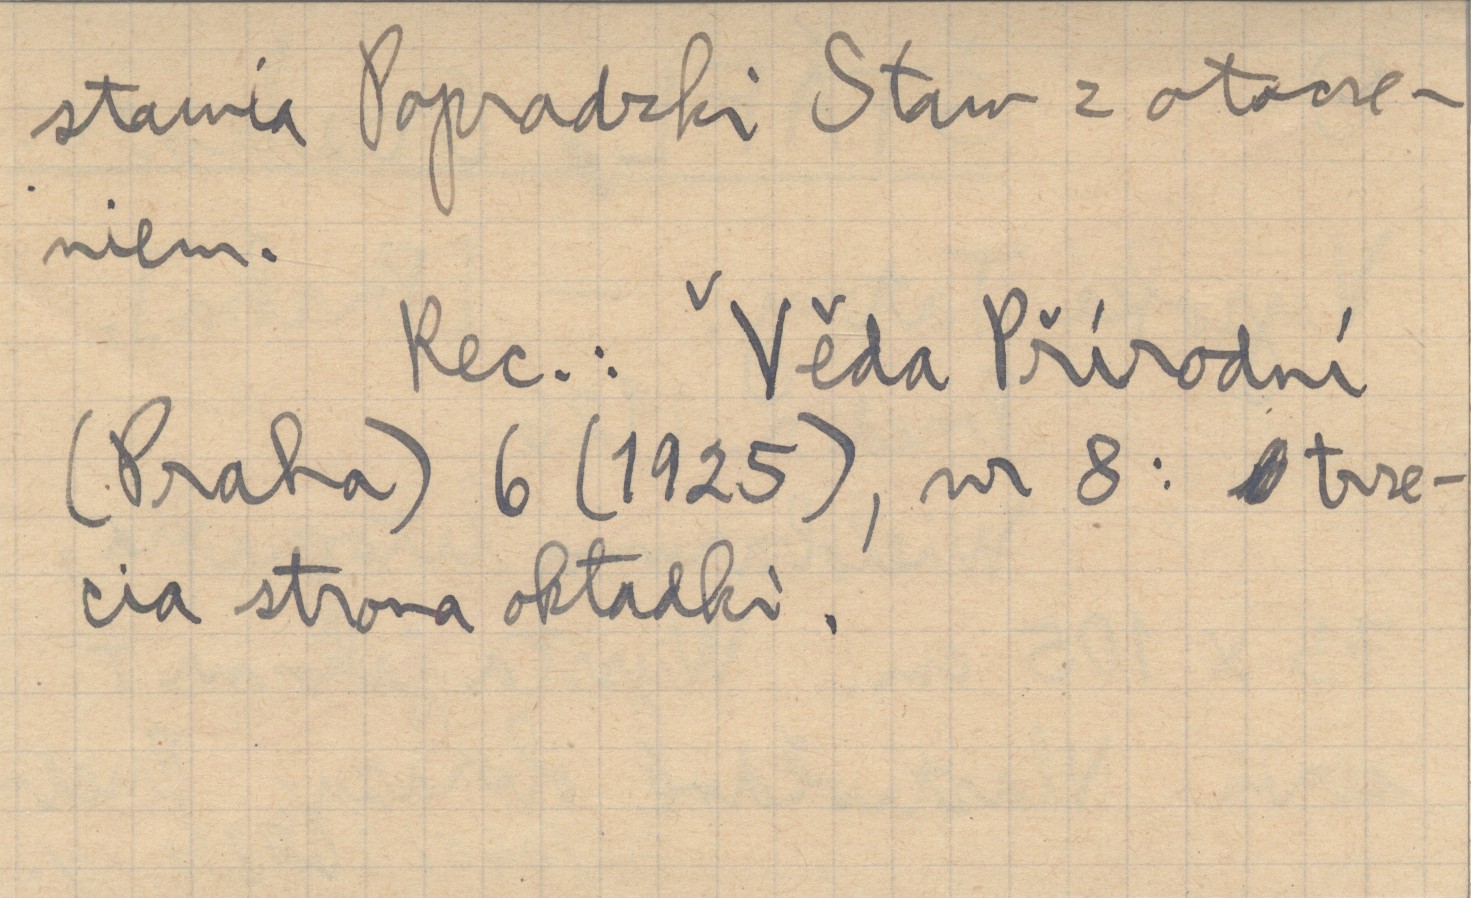 stawia Popradzki Staw z otocze-
niem.
Rec.: Věda Přírodní
(Praha) 6 (1925), nr 8: trze-
cia strona okładki.